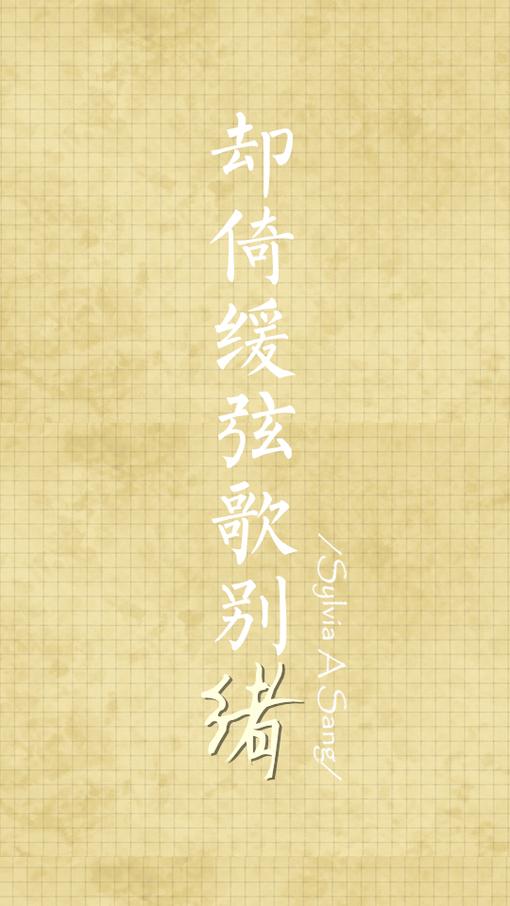 却倚缓弦歌别绪
/Sylvia A Sang/